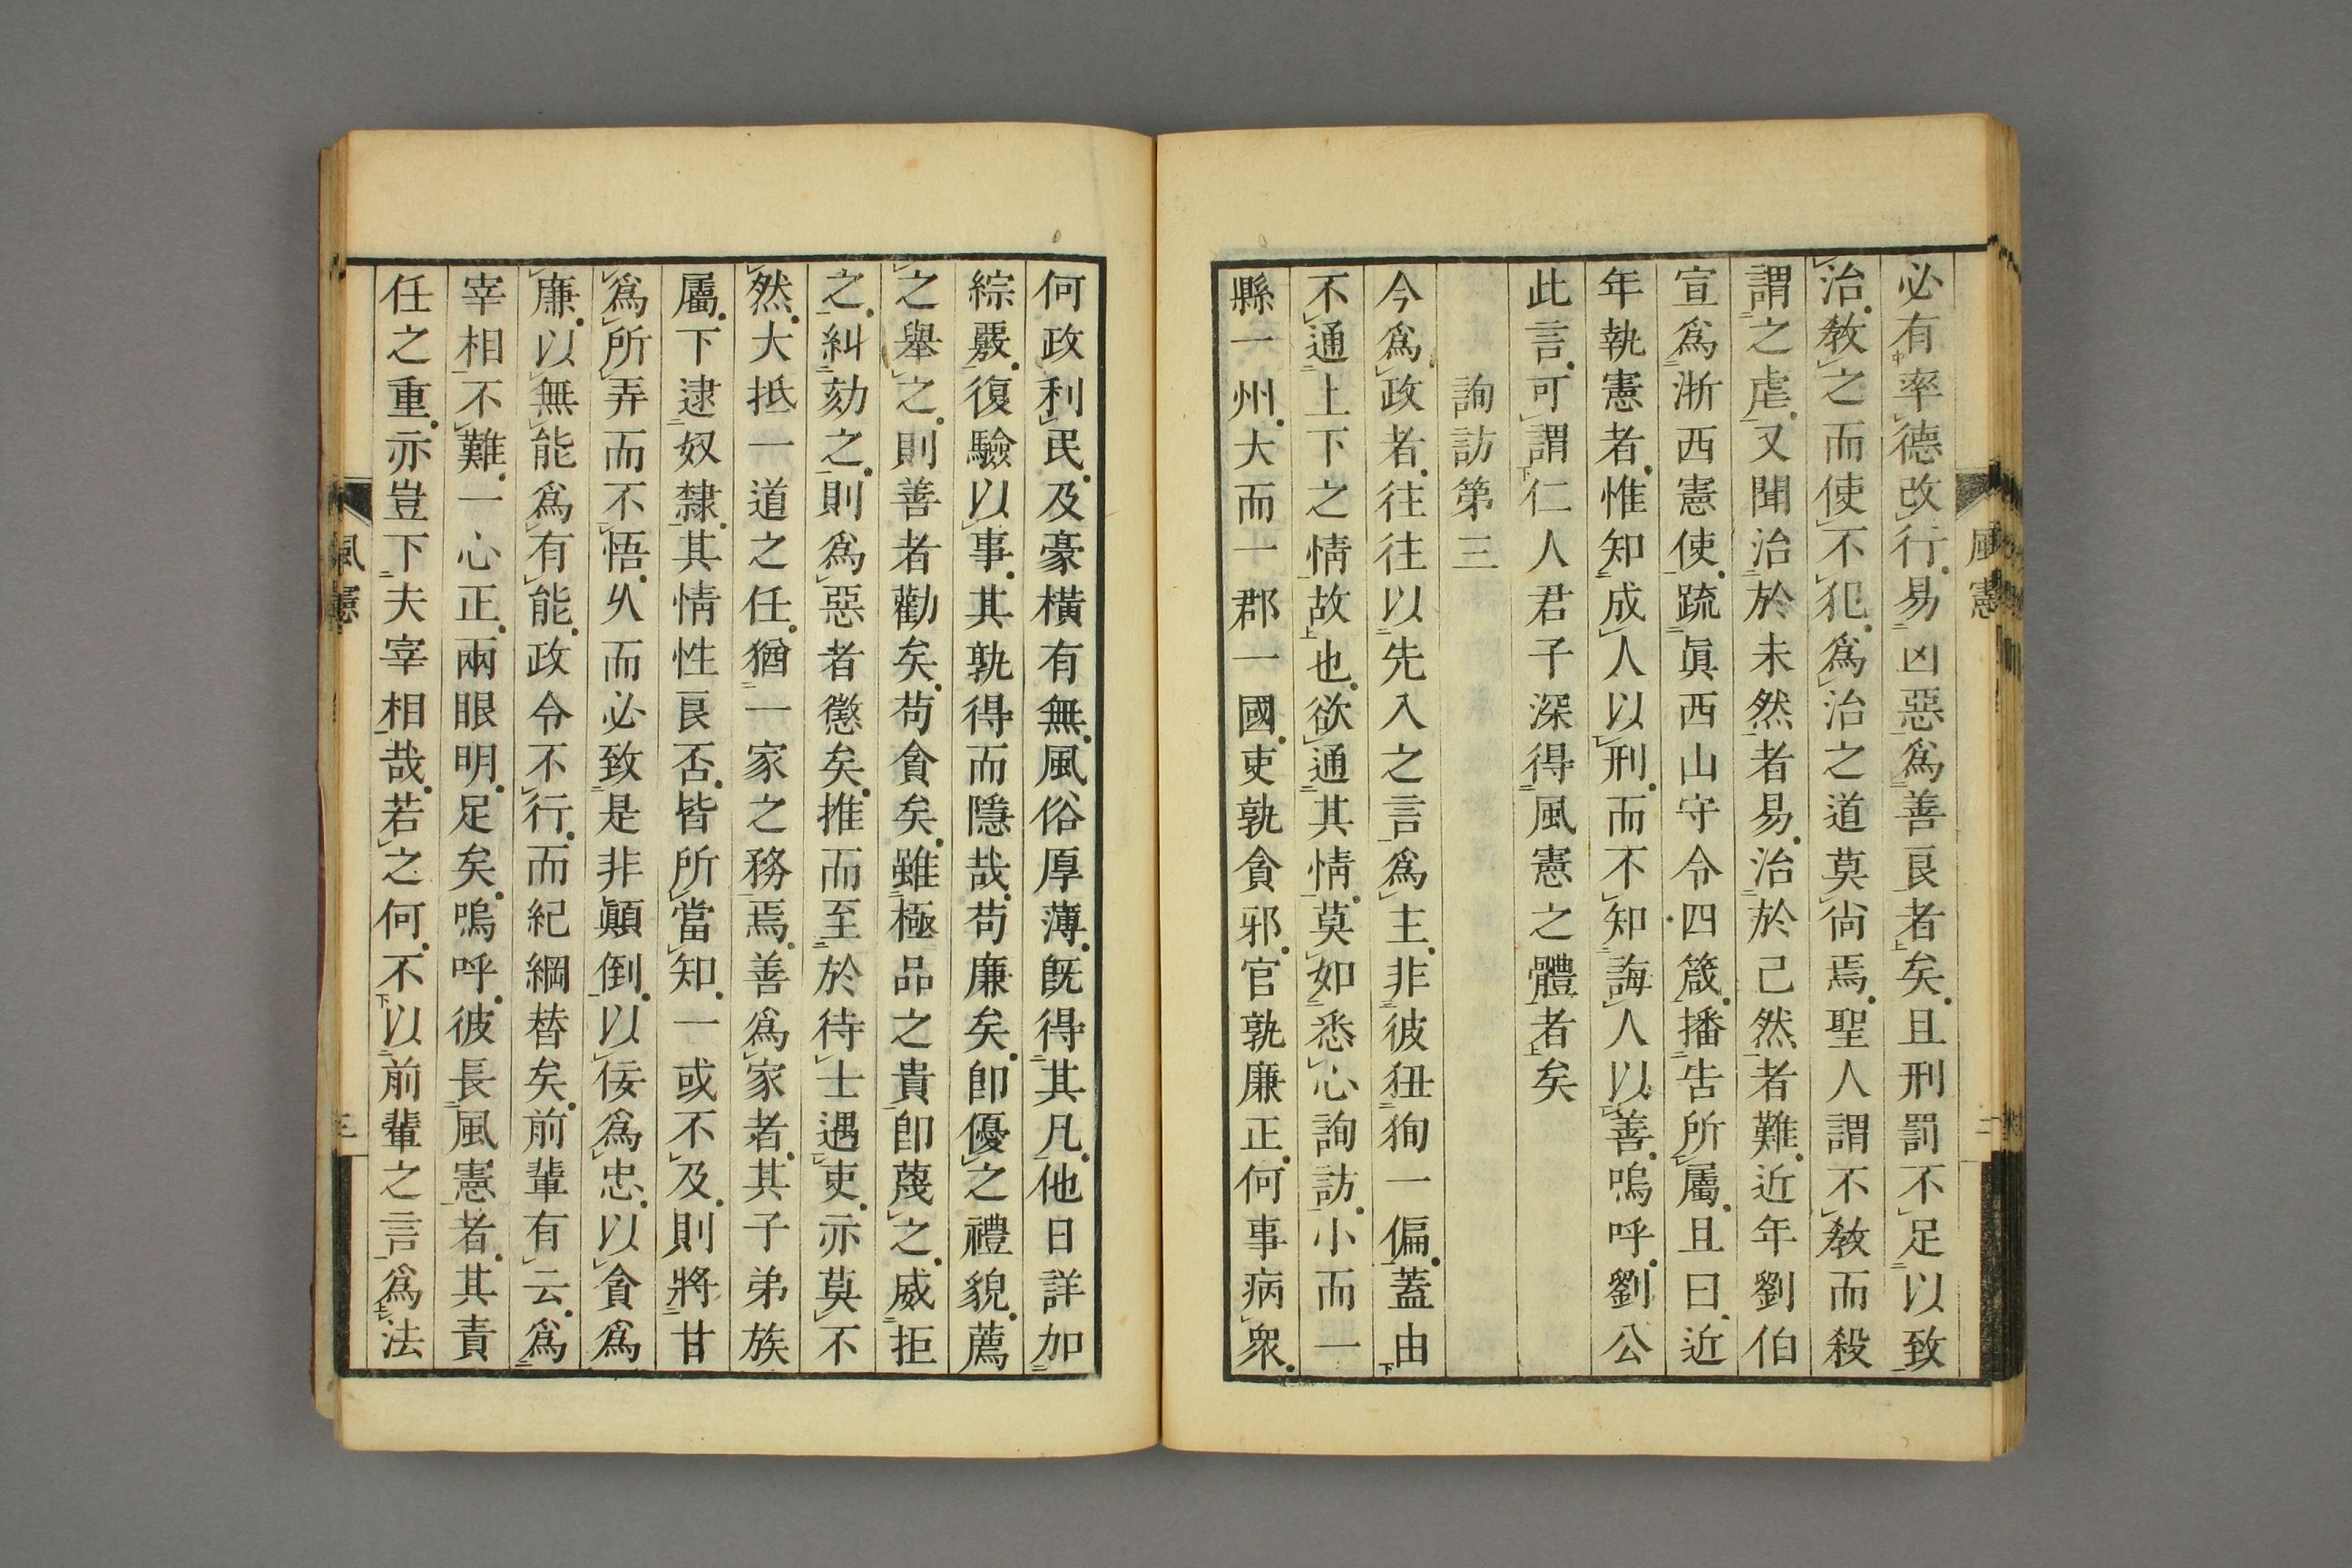 風憲
二
必有率德改行易凶惡爲善良者矣且刑罰不足以致
治教之而使不犯爲治之道莫尚焉聖人謂不教而殺
謂之虐又聞治於未然者易治於已然者難近年劉伯
宣爲浙西憲使疏眞西山守令四箴播告所屬且曰近
年執憲者惟知成人以刑而不知誨人以善嗚呼劉公
此言可謂仁人君子深得風憲之體者矣
詢訪第三
今爲政者往往以先入之言爲主非彼狃狥一偏蓋由
不通上下之情故也欲通其情莫如悉心詢訪小而一
縣一州大而一郡一國吏孰貪邪官孰廉正何事病衆
何政利民及豪橫有無風俗厚薄旣得其凡他日詳加
綜覈復驗以事其孰得而隱哉苟廉矣卽優之禮貌薦
之舉之則善者勸矣苟貪矣雖極品之貴卽蔑之威拒
之糾劾之則爲惡者懲矣推而至於待士遇吏亦莫不
然大抵一道之任猶一家之務焉善爲家者其子弟族
屬下逮奴隸其情性良否皆所當知一或不及則將甘
爲所弄而不悟久而必致是非顚倒以佞爲忠以貪爲
廉以無能爲有能政令不行而紀綱替矣前輩有云爲
宰相不難一心正兩眼明足矣嗚呼彼長風憲者其責
任之重亦豈下夫宰相哉若之何不以前輩之言爲法
風憲
三